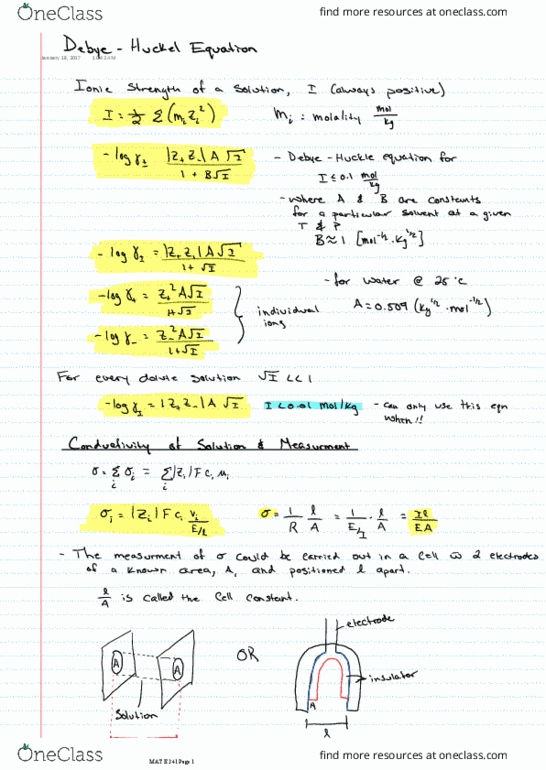 OneClass
find more resources at oneclass.com
Debye - Huckel Equation
January 18, 2017
Ionic Strength of a Solution, I (always positive)
I = 1/2 Σ (mᵢ Zᵢ²)    mᵢ = molality mol/kg
- log γ± |Z₊ Z₋| A √I / 1 + B√I    - Debye - Huckle equation for
I ≤ 0.1 mol/kg
- where A & B are constants
for a particular solvent at a given
T & P
B ≈ 1 [mol^-1/2 · kg^1/2]
- log γ± = |Z₊ Z₋| A √I / 1 + √I
- for water @ 25 °C
- log γ₊ = Z₊² A √I / 1 + √I    individual ions    A = 0.509 (kg^1/2 · mol^-1/2)
- log γ₋ = Z₋² A √I / 1 + √I
For every dilute solution √I << 1
- log γ± = |Z₊ Z₋| A √I    I < 0.01 mol/kg    - can only use this eqn
when!!
Conductivity of Solution & Measurment
σ = Σ σᵢ = Σ |Zᵢ| F cᵢ uᵢ
σᵢ = |Zᵢ| F cᵢ vᵢ / E/l    σ = 1/R l/A = 1/E/I · l/A = Il/EA
- The measurment of σ could be carried out in a cell w 2 electrodes
of a known area, A, and positioned l apart.
l/A is called the Cell Constant.
electrode
OR
A A
insulator
A
Solution
l
OneClass
MAT E 241 Page 1
find more resources at oneclass.com